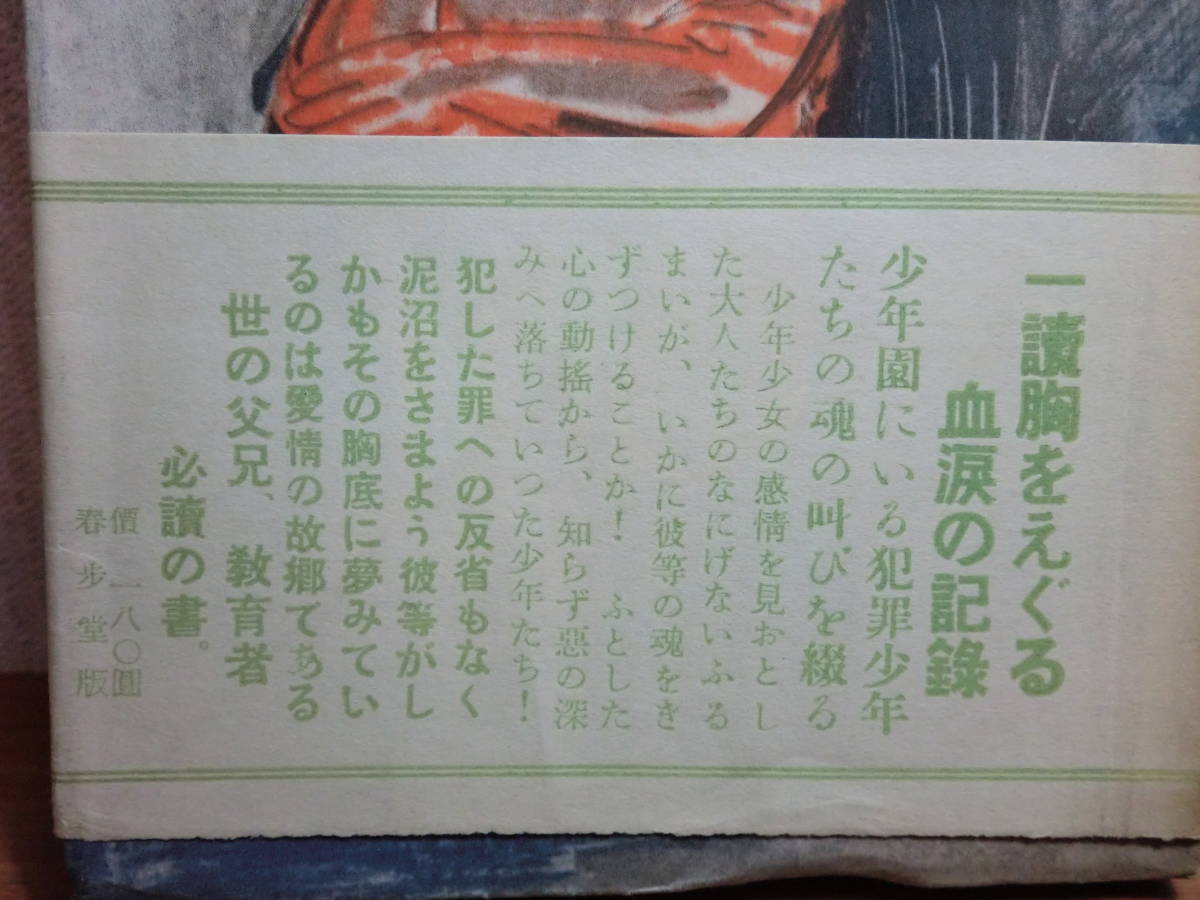 一讀胸をえぐる
血涙の記錄
少年園にいる犯罪少年
たちの魂の叫びを綴る
少年少女の感情を見おとし
た大人たちのなにげないふる
まいが、いかに彼等の魂をき
ずつけることか！　ふとした
心の動搖から、知らず惡の深
みへ落ちていつた少年たち！
犯した罪への反省もなく
泥沼をさまよう彼等がし
かもその胸底に夢みてい
るのは愛情の故郷である
世の父兄、教育者
必讀の書。
價　一八〇圓
春步堂版